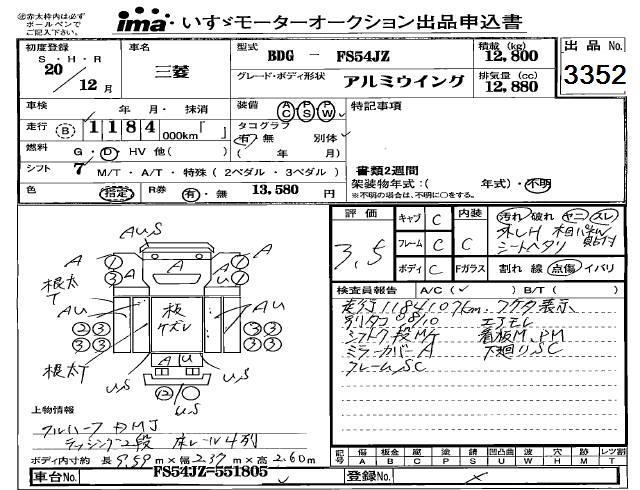 ㊟赤太枠内は必ず
ボールペンで
ご記入下さい。
ima いすゞモーターオークション出品申込書
初度登録
S・H・R
20
12月
車名
三菱
型式
BDG - FS54JZ
グレード・ボディ形状
アルミウイング
積載(kg)
12,800
排気量(cc)
12,880
出品 No.
3352
車検
年 月・ 抹消
走行 B 1184 000km「 」
燃料 G・D・HV 他( )
シフト 7 M/T・A/T・特殊(2ペダル・3ペダル)
色 指定 R券 有・無 13,580 円
装備 AC PS PW
タコグラフ
有 無 別体
( 年 月)
特記事項
書類2週間
架装物年式:( 年式)・不明
※不明の場合は、不明に○をする。
評価
3.5
キャブ C
フレーム C
ボディ C
内装
C
Fガラス
汚れ 破れ ヤニ スレ
シートヘタリ
割れ 線 点傷 イバリ
検査員報告 A/C(✓) B/T( )
走行1184107km.
別タコ 08/10 エアモレ
シフトク段M/T 看板M、PM
ミラーカバーA 下廻りSC
フレームSC
AUS
A
A
1
3
1
3
A
根太T
AU
板
ケズレ
AU
2 3
2 2
3 3
3 3
根太T
AU
US
US
12
US
上物情報
フルハーフ
ラッシング2段 床レール4列
ボディ内寸約 長9.59m×幅2.37m×高2.60m
記号 傷 板 腐 圧 錆 凹凸曲 波 穴 跡 レツ割
A B C P S U W H M T
車台No. FS54JZ-551805
登録No.